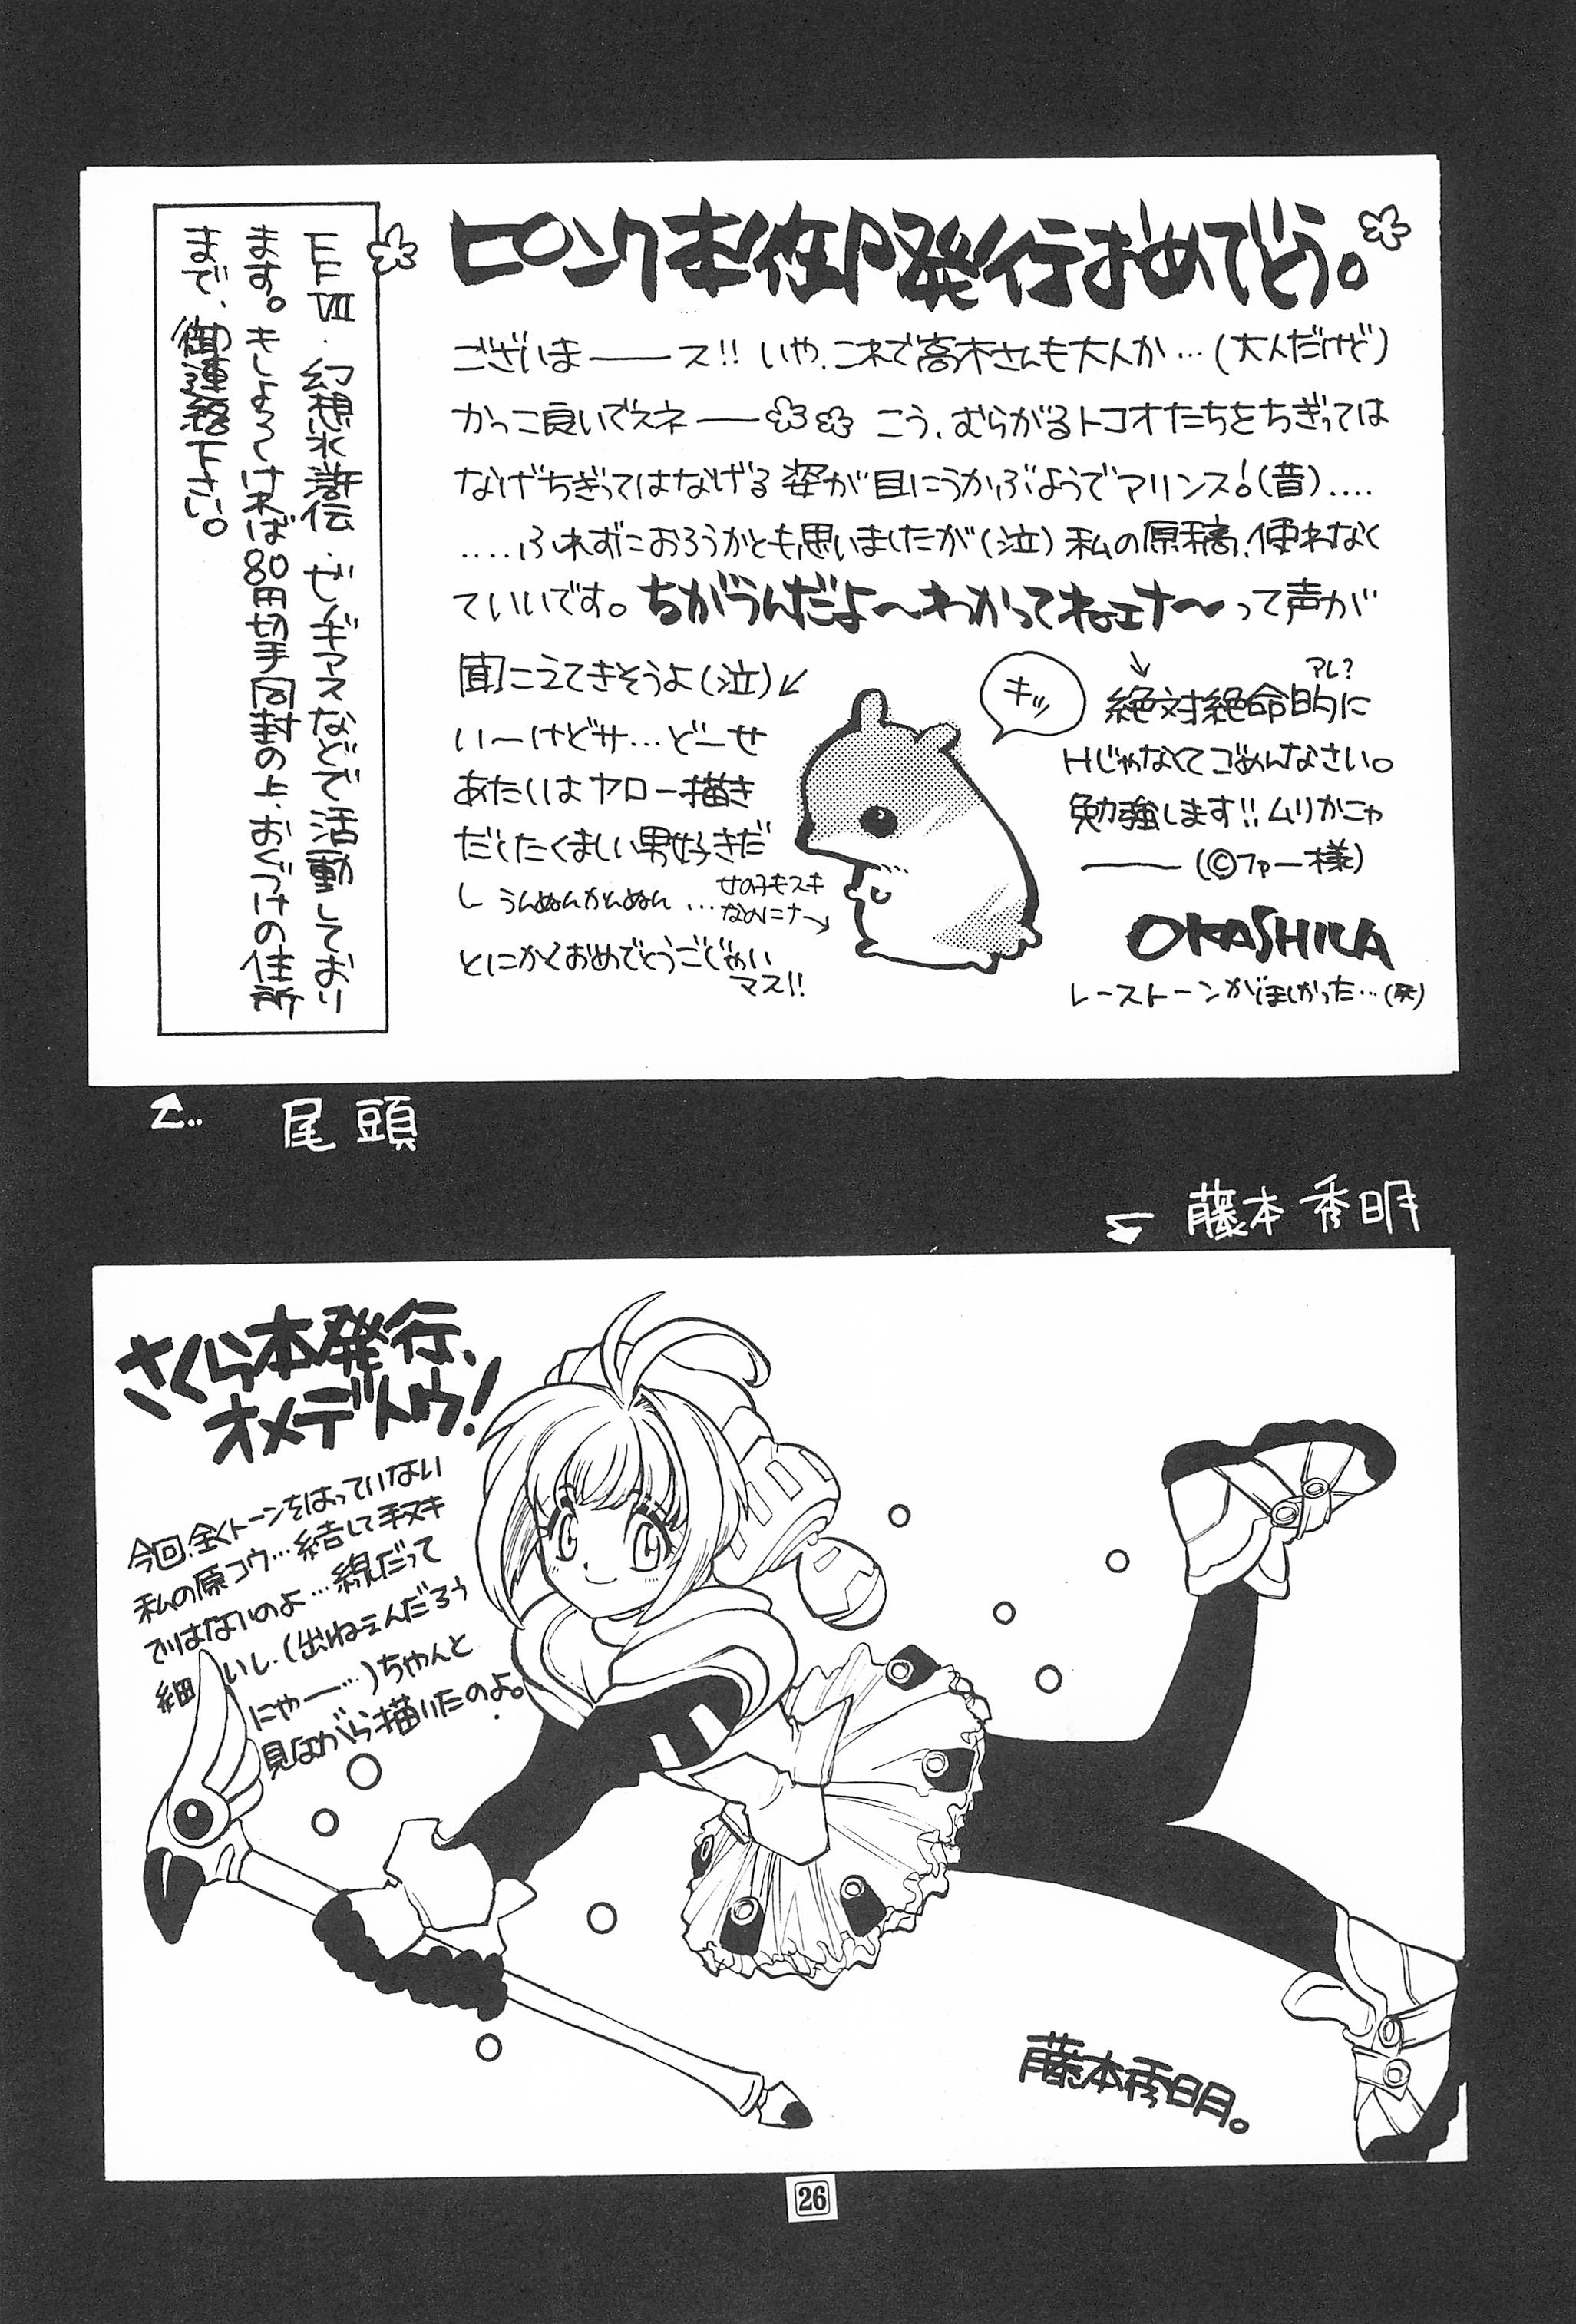 ピンク本御発行おめでとう。
ございま――ス!! いや、これで高木さんも大人か…(大人だけど)
かっこ良いでスネ―― こう、むらがるトコオたちをちぎっては
なげちぎってはなげる姿が目にうかぶようでマリンス!(昔)‥‥
‥‥ふれずにおろうかとも思いましたが(泣)私の原稿、使わなく
ていいです。ちがうんだよ〜わかってねェナ〜って声が
聞こえてきそうよ(泣)
い〜けどサ…どーせ
あたいはヤロー描き
だしたくましい男好きだ
し うんぬんかんぬん…
女の子もスキ
なのにナ→
とにかくおめでとうごじゃい
マス!!
キッ
アレ?
絶対絶命的に
Hじゃなくてごめんなさい。
勉強します!! ムリかニャ
――(©ファー様)
OKASHIRA
レーストーンがほしかった…(死)
FFVII・幻想水滸伝・ゼノギアスなどで活動しており
ます。もしよろしければ80円切手同封の上、おくづけの住所
まで、御連絡下さい。
尾頭
藤本秀明
さくら本発行、
オメデトウ!
今回、全くトーンをはっていない
私の原コウ…結して手ヌキ
ではないのよ…線だって
細いし、(出ねェんだろう
にゃー…)ちゃんと
見ながら描いたのよ。
藤本秀明。
26